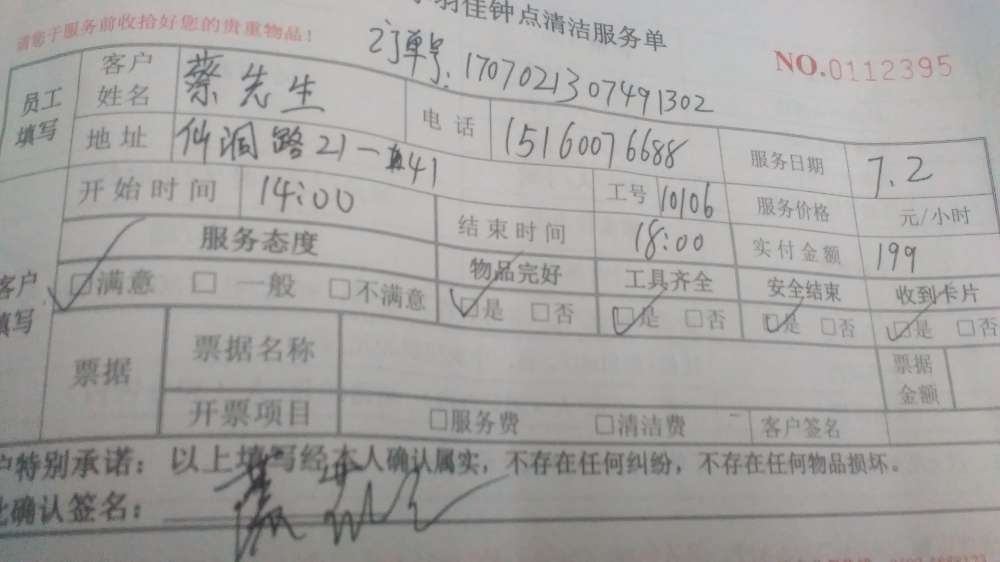 佳钟点清洁服务单
请您于服务前收拾好您的贵重物品!
订单号:1707021307491302
NO.0112395
员工填写 客户姓名 蔡先生 电话 15160076688 服务日期 7.2
地址 仙洞路21-41 工号 10106 服务价格 元/小时
开始时间 14:00 结束时间 18:00 实付金额 199
客户填写 服务态度 物品完好 工具齐全 安全结束 收到卡片
□满意 □一般 □不满意 □是 □否 □是 □否 □是 □否 □是 □否
票据 票据名称 票据金额
开票项目 □服务费 □清洁费 客户签名
户特别承诺:以上填写经本人确认属实,不存在任何纠纷,不存在任何物品损坏。
此确认签名: